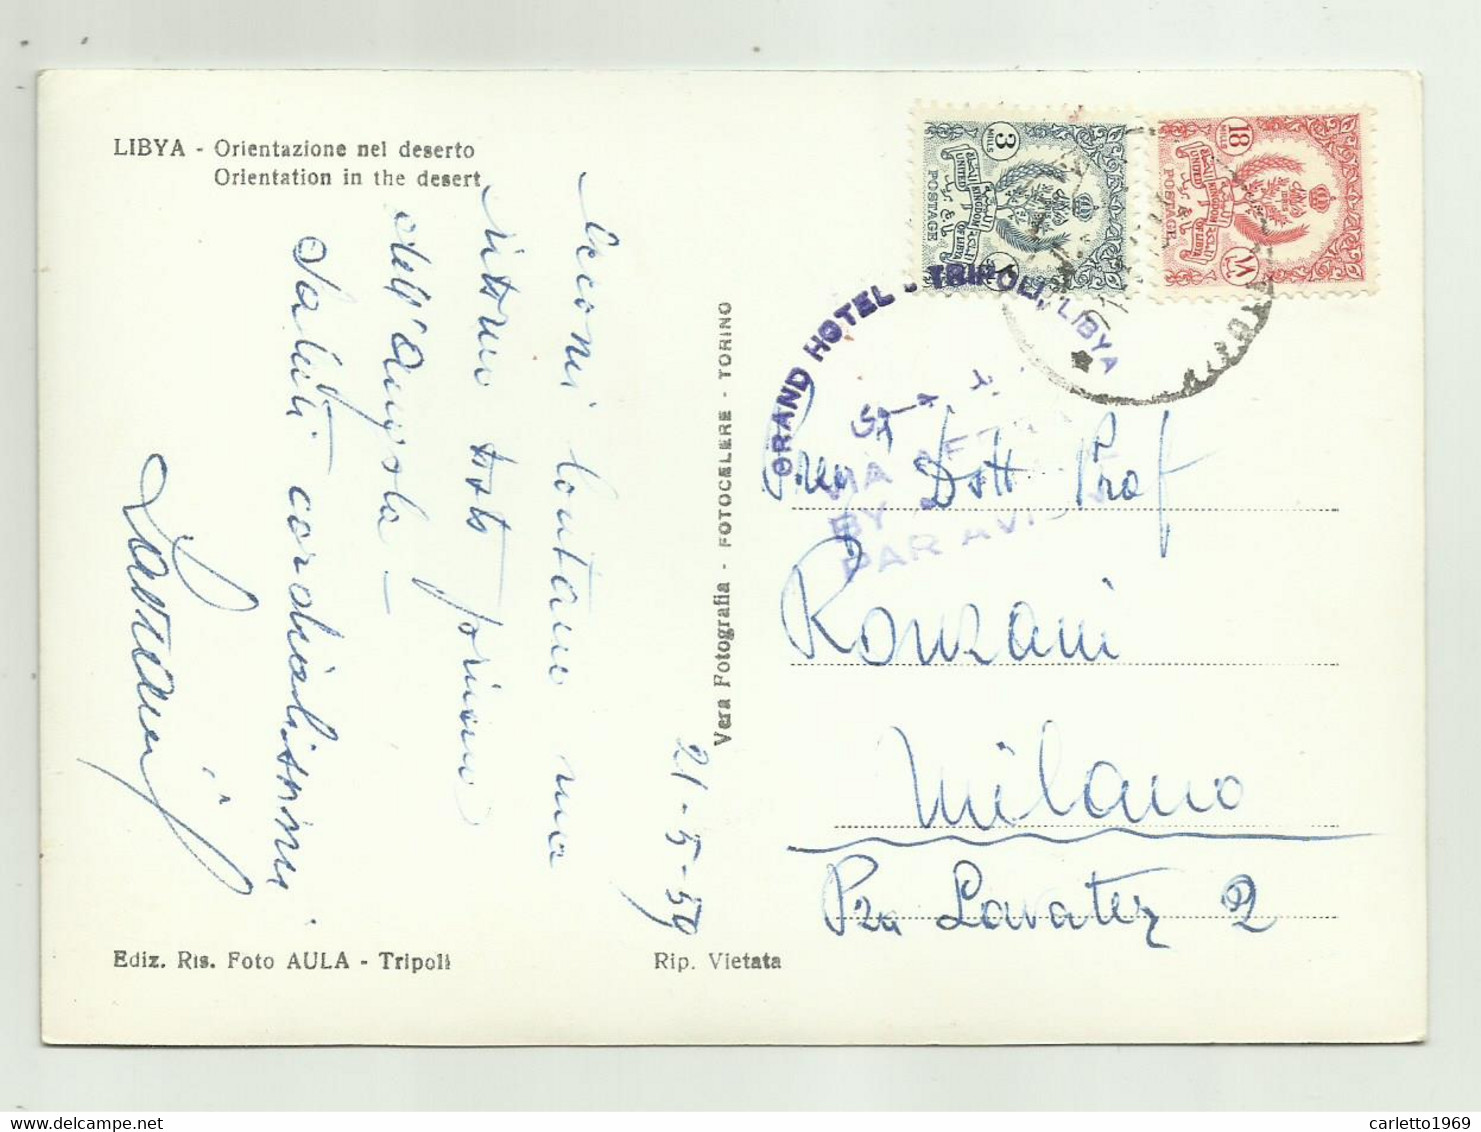 LIBYA - Orientazione nel deserto
Orientation in the desert
Eccomi lontano ma
ritorno
dell'Angola -
Saluti cordialissimi
21-5-59
Ediz. Ris. Foto AULA - Tripoli
Rip. Vietata
Vera Fotografia - FOTOCELERE - TORINO
3
MILLS
UNITED KINGDOM OF LIBYA
POSTAGE
18
MILLS
UNITED KINGDOM OF LIBYA
POSTAGE
GRAND HOTEL - TRIPOLI, LIBYA
VIA AEREA
BY
PAR AVION
Preg Dott Prof
Ronzani
Milano
Pza Lavater 2
carletto1969